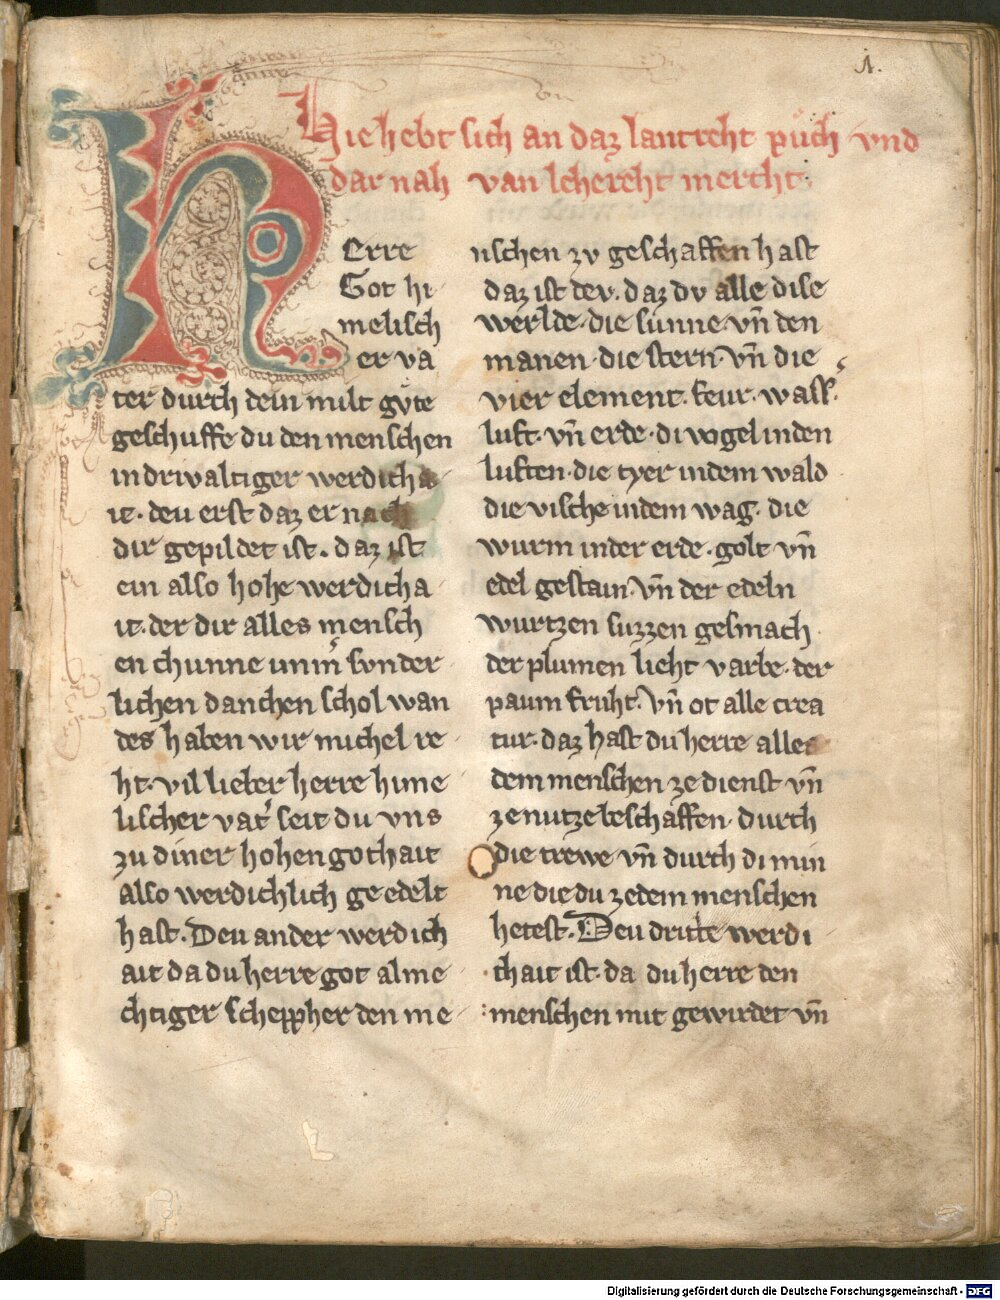 1.
Hie hebt sich an daz lantreht püch vnd
dar nah van lehereht mercht.
Herre
Got hi-
melisch
er va
ter durch dein milt gvͤte
geschuffe du den menschen
in drivaltiger werdicha-
it. deu erst daz er nach
dir gepildet ist. daz ist
ein also hohe werdicha-
it. der dir alles mensch
en chunne im̄ sunder
lichen danchen schol wan
des haben wir michel re-
ht. vil lieber herre hime
lischer vater seit du vns
zu diner hohen gothait
also werdichlich geedelt
hast. Deu ander werdich
ait da du herre got alme-
chtiger scheppher den me-
nschen zv geschaffen hast
daz ist dev. daz dv alle dise
werlde. die sunne. vn̄ den
manen. die stern. vn̄ die
vier element. feur. wass.
luft. vn̄ erde. di vogel in den
luften. die tyer in dem wald
die vische in dem wag. die
wurm in der erde. golt vn̄
edel gestain. vn̄ der edeln
wurtzen suzzen gesmach.
der plumen lieht varbe. der
paum fruht. vn̄ ot alle crea
tur. daz hast du herre alles
dem menschen ze dienst vn̄
ze nutze beschaffen. durch
die trewe vn̄ durch di min
ne die du ze dem menschen
hetest. Deu dritte werdi
chait ist. da du herre den
menschen mit gewirdet vn̄
Digitalisierung gefördert durch die Deutsche Forschungsgemeinschaft - DFG